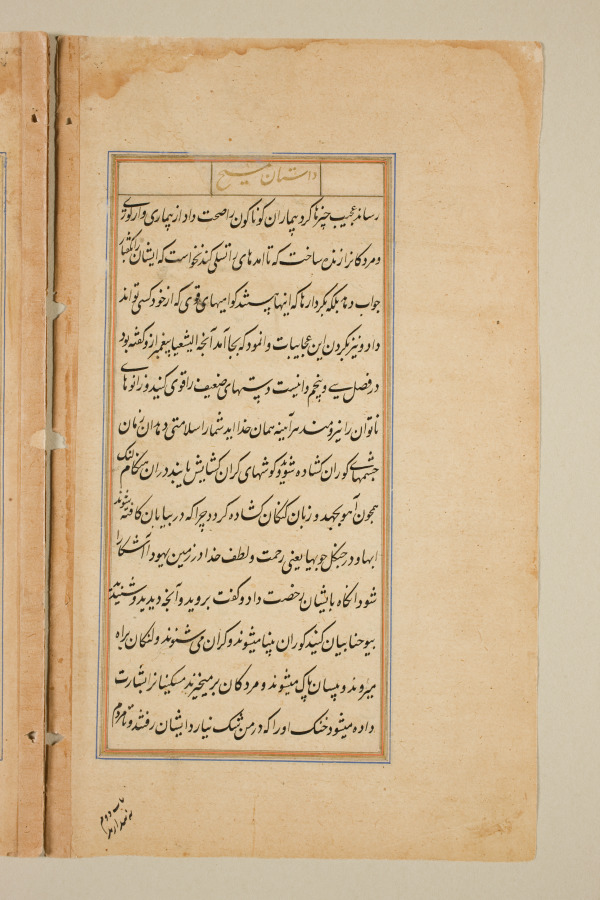 داستان مسیح
رساند عجیب چیزها کرد بیماران کوناکون را صحت داد از بیماری واز لوزی
و مردکانرا زنده ساخت که تا آمدهای را تسلی کند نخواست که ایشان را بگفتار
جواب دهد بلکه بکردارها که اینها پیستند کواهیهای قوی که از خود کسی تواند
داد و نیز بکردن این عجایبات وانمود که بجا آمد آنچه الیشعیا پیغمبر ازو کفته بود
در فصل سی و پنجم دانیست دستهای ضعیف را قوی کنید و زانوهای
ناتوان را نیرومند هر آینه همان خدا اید شمارا سلامتی دهد ان زمان
چشمهای کوران کشاده شود و کوشهای کران کشایش یابند دران هنکام لنک
همچون آهو بجهد و زبان کنکان کشاده کردد چرا که در بیابان کافته شوند
ابها و در جنکل جویها یعنی رحمت و لطف خدا در زمین یهودا آشکارا
شود انکاه بایشان رخصت داد و کفت بروید و آنچه دیدید و شنیدید
بیوحنا بیان کنید کوران بینا میشوند و کران می شنوند و لنکان براه
میروند و پیسان پاک میشوند و مردکان بر میخیزند مسکینانرا بشارت
داده میشود خنک اورا که در من شک نیارد ایشان رفتند و تا مردم
باب دوم